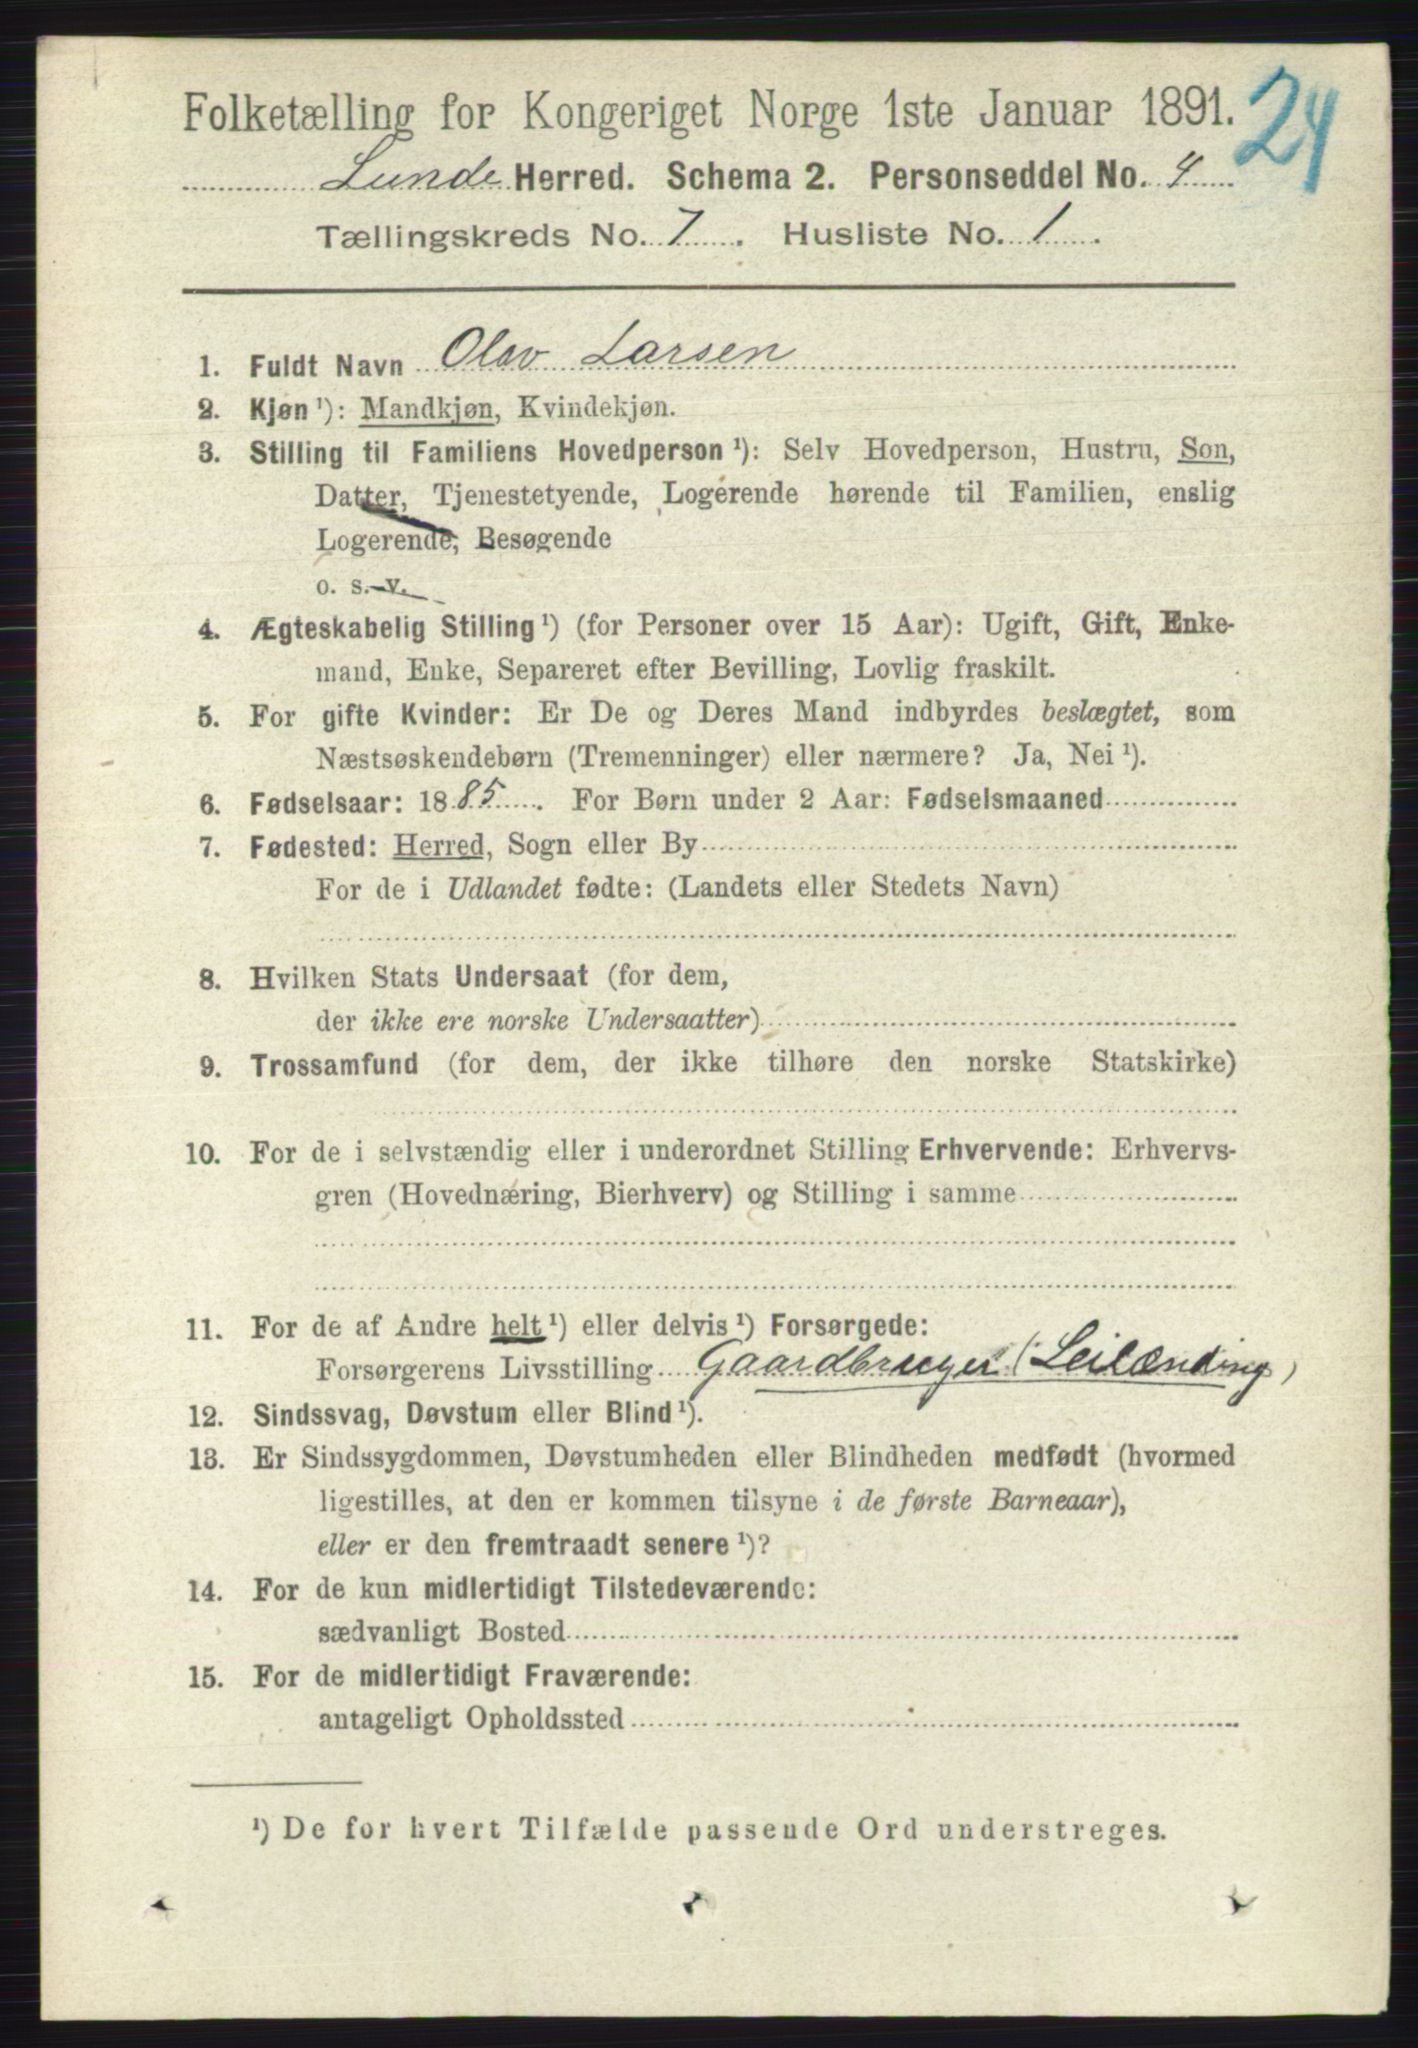 Folketælling for Kongeriget Norge 1ste Januar 1891.
24
Lunde Herred. Schema 2. Personseddel No. 4
Tællingskreds No. 7. Husliste No. 1.
1. Fuldt Navn Olav Larsen
2. Kjøn ¹): Mandkjøn, Kvindekjøn.
3. Stilling til Familiens Hovedperson ¹): Selv Hovedperson, Hustru, Søn,
Datter, Tjenestetyende, Logerende hørende til Familien, enslig
Logerende, Besøgende
o. s. v.
4. Ægteskabelig Stilling ¹) (for Personer over 15 Aar): Ugift, Gift, Enke-
mand, Enke, Separeret efter Bevilling, Lovlig fraskilt.
5. For gifte Kvinder: Er De og Deres Mand indbyrdes beslægtet, som
Næstsøskendebørn (Tremenninger) eller nærmere? Ja, Nei ¹).
6. Fødselsaar: 1885. For Børn under 2 Aar: Fødselsmaaned
7. Fødested: Herred, Sogn eller By
For de i Udlandet fødte: (Landets eller Stedets Navn)
8. Hvilken Stats Undersaat (for dem,
der ikke ere norske Undersaatter)
9. Trossamfund (for dem, der ikke tilhøre den norske Statskirke)
10. For de i selvstændig eller i underordnet Stilling Erhvervende: Erhvervs-
gren (Hovednæring, Bierhverv) og Stilling i samme
11. For de af Andre helt ¹) eller delvis ¹) Forsørgede:
Forsørgerens Livsstilling Gaardbruger (Leilænding)
12. Sindssvag, Døvstum eller Blind ¹).
13. Er Sindssygdommen, Døvstumheden eller Blindheden medfødt (hvormed
ligestilles, at den er kommen tilsyne i de første Barneaar),
eller er den fremtraadt senere ¹)?
14. For de kun midlertidigt Tilstedeværende:
sædvanligt Bosted
15. For de midlertidigt Fraværende:
antageligt Opholdssted
¹) De for hvert Tilfælde passende Ord understreges.